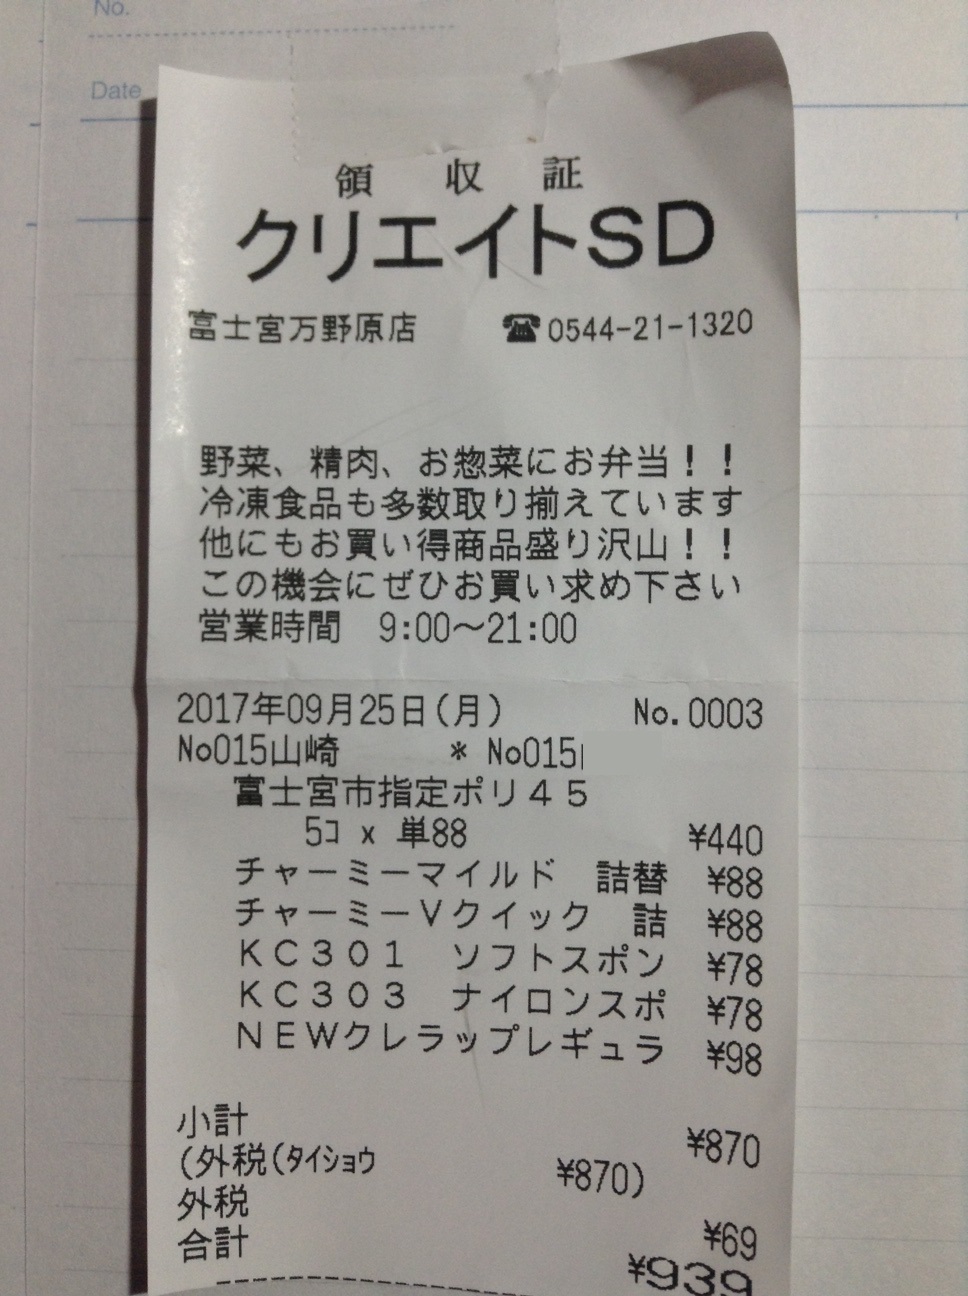 No.
Date
領 収 証
クリエイトSD
富士宮万野原店 ☎0544-21-1320
野菜、精肉、お惣菜にお弁当!!
冷凍食品も多数取り揃えています
他にもお買い得商品盛り沢山!!
この機会にぜひお買い求め下さい
営業時間 9:00～21:00
2017年09月25日(月) No.0003
No015山崎 * No015
富士宮市指定ポリ45
5コ x 単88 ¥440
チャーミーマイルド 詰替 ¥88
チャーミーVクイック 詰 ¥88
KC301 ソフトスポン ¥78
KC303 ナイロンスポ ¥78
NEWクレラップレギュラ ¥98
小計 ¥870
(外税(タイショウ ¥870)
外税 ¥69
合計 ¥939